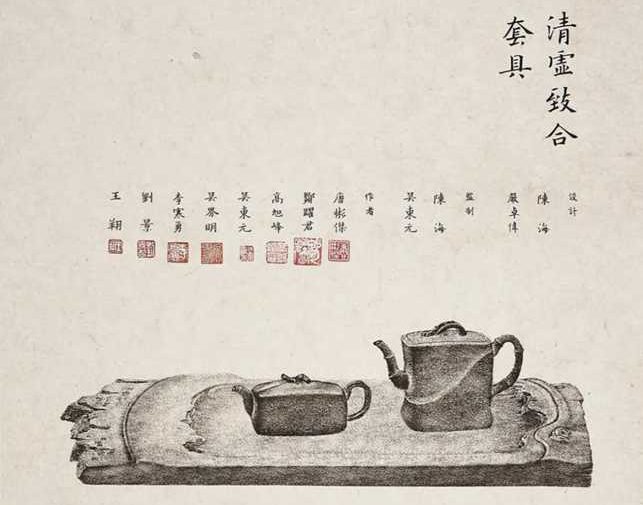 清虛致合
套具
設計
陳海
嚴卓偉
監制
陳海
吴東元
作者
唐彬傑
鄭躍君
高旭峰
吴東元
吴界明
李寒勇
劉景
王翔